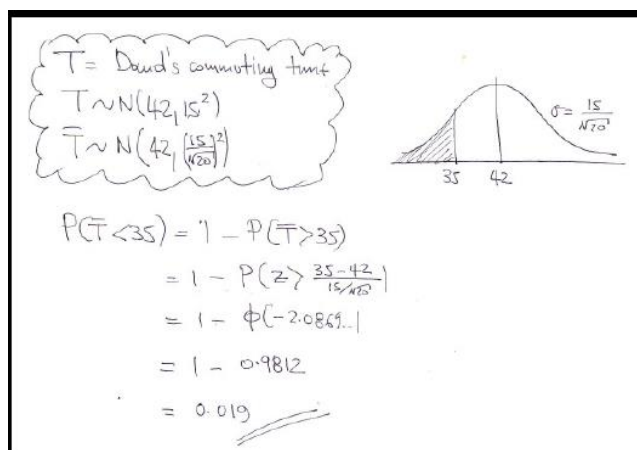 T = David's commuting time
T ~ N(42, 15²)
T̄ ~ N(42, (15/√20)²)
σ = 15/√20
35 42
P(T̄ < 35) = 1 - P(T̄ > 35)
= 1 - P(z > (35-42)/(15/√20))
= 1 - Φ(-2.0869..)
= 1 - 0.9812
= 0.019